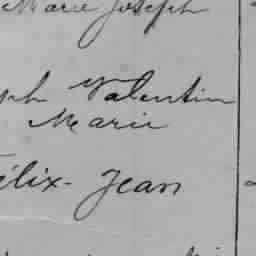 Marie Joseph
ph Valentin
Marie
élix - Jean